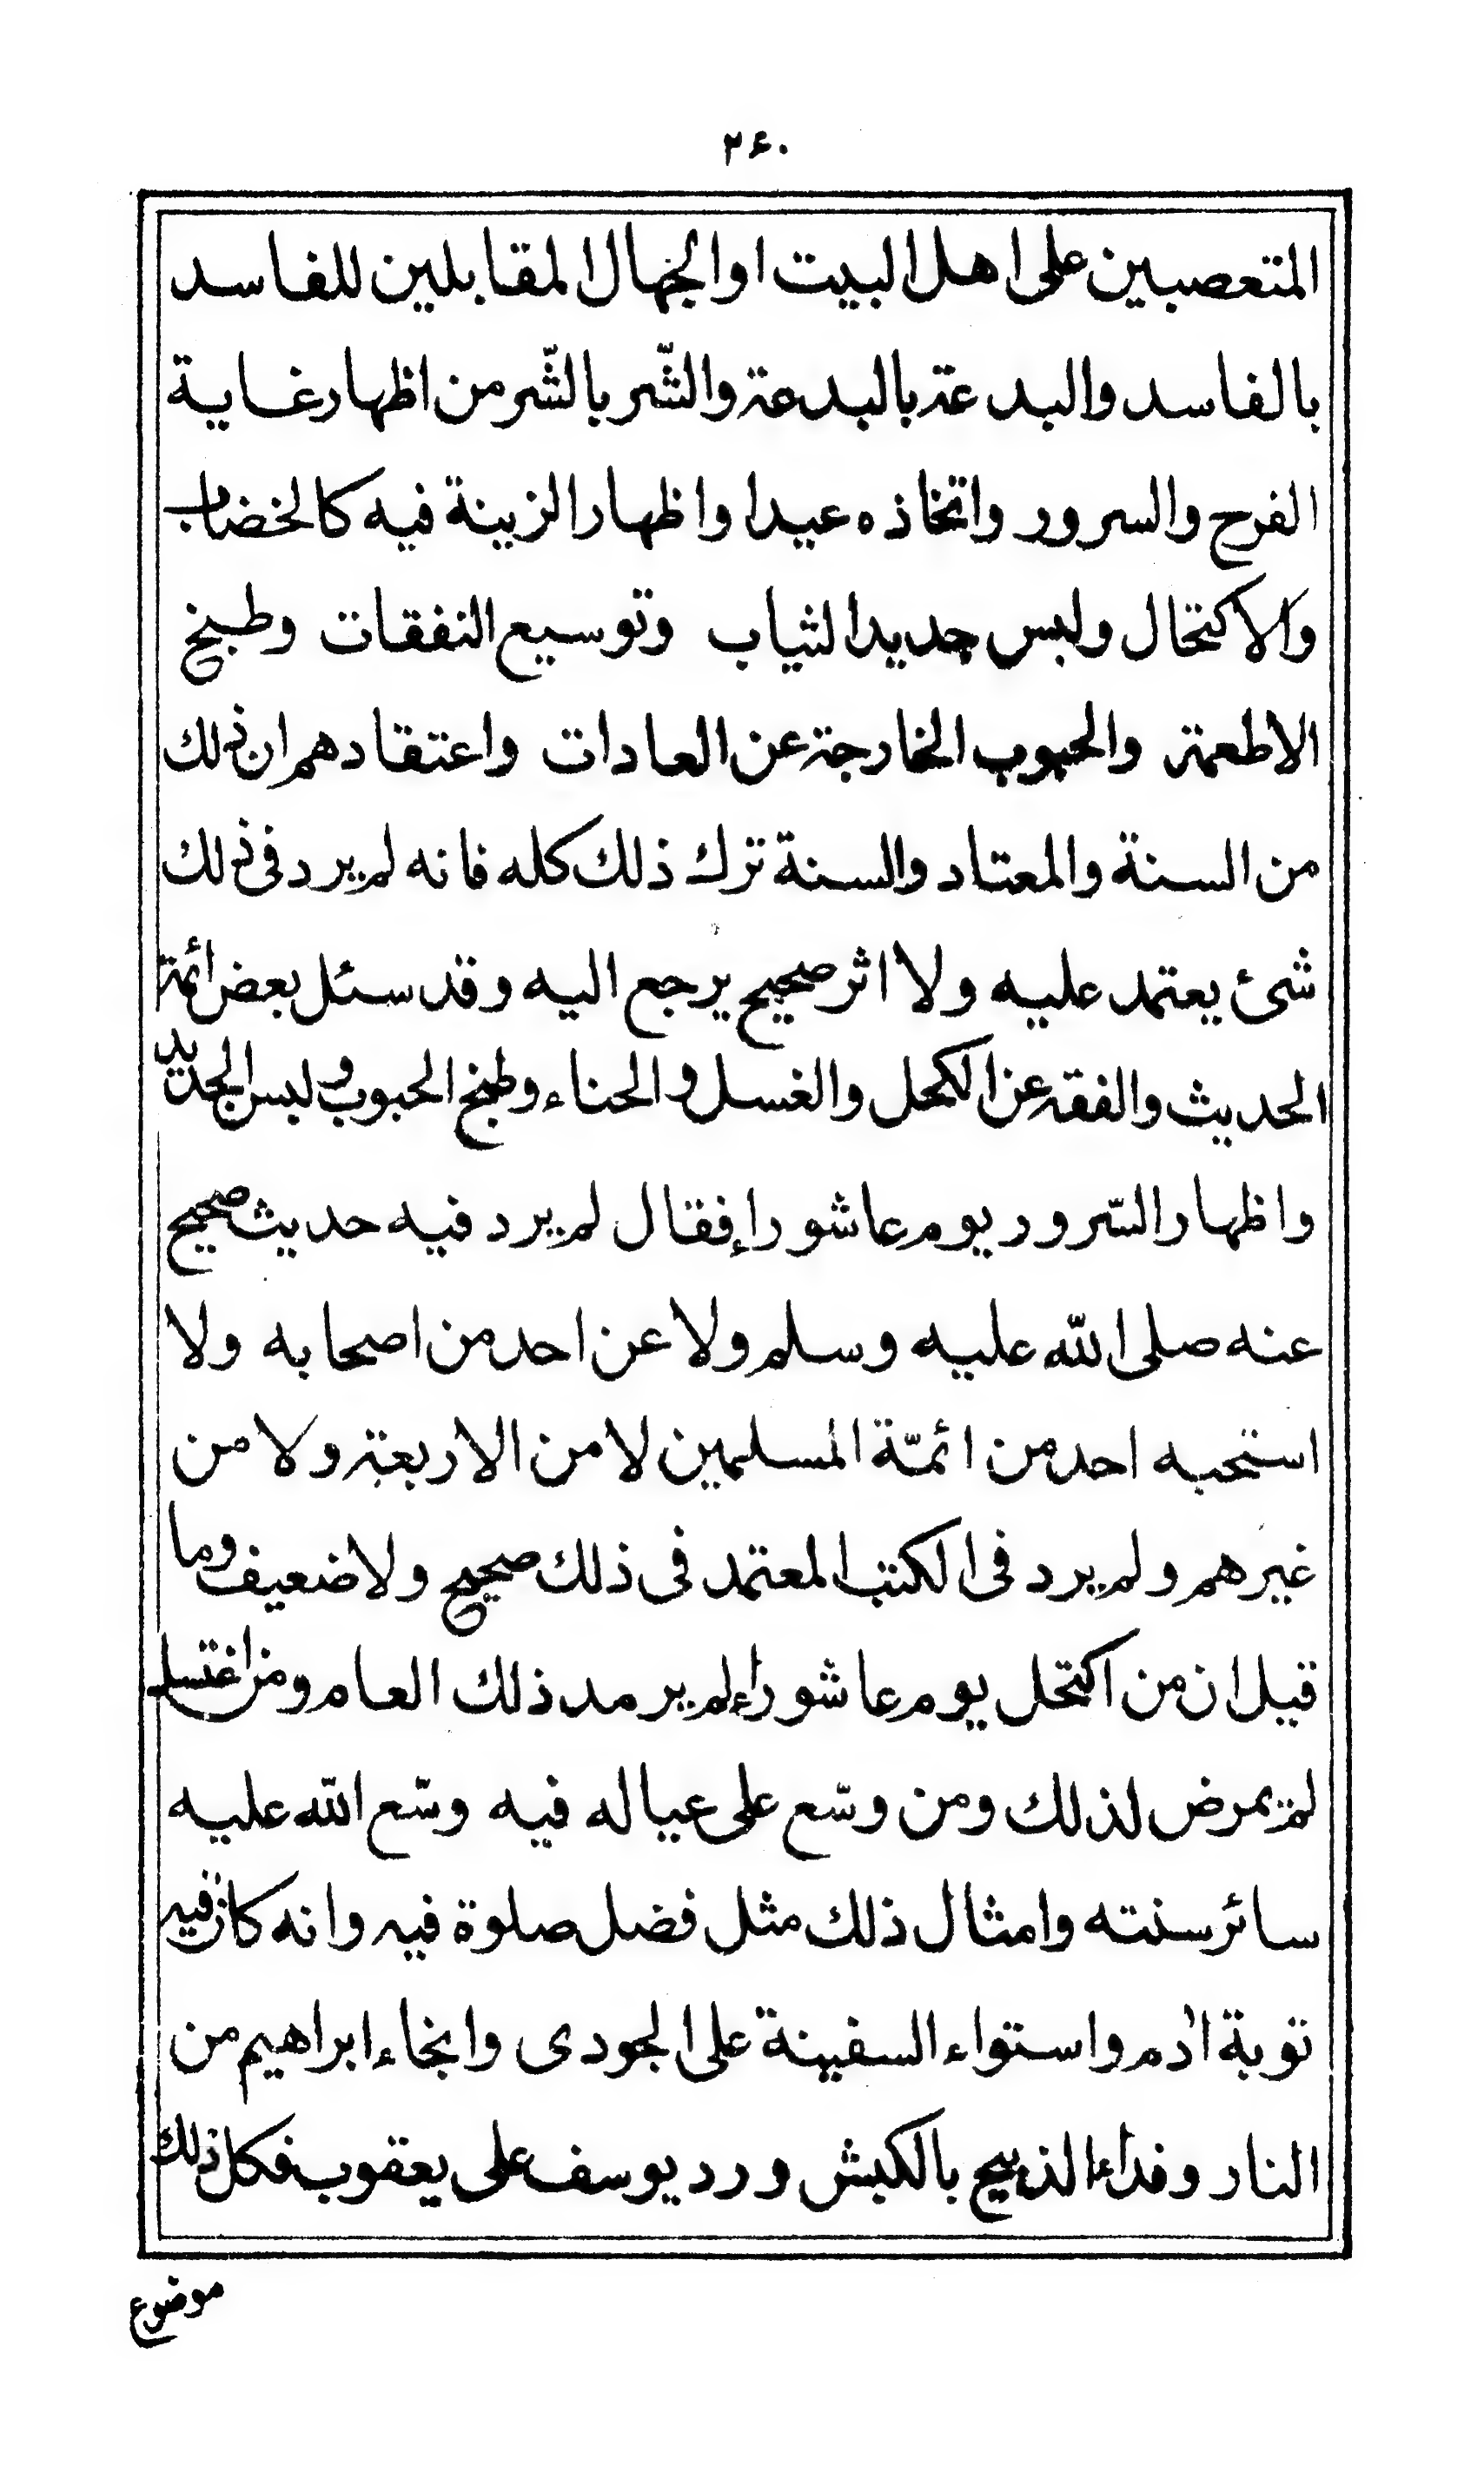 ۲۶۰
المتعصبين على اهل البيت اوالجهال المقابلين للفاسد
بالفاسد والبدعة بالبدعة والشّر بالشّر من اظهار غاية
الفرح والسرور واتخاذه عيدا واظهار الزينة فيه كالخضاب
والاكتحال ولبس جديد الثياب وتوسيع النفقات وطبخ
الاطعمة والحبوب الخارجة عن العادات واعتقادهم ان ذلك
من السنة والمعتاد والسنة ترك ذلك كله فانه لم يرد فى ذلك
شئ يعتمد عليه ولا اثر صحيح يرجع اليه وقد سئل بعض ائمة
الحديث والفقه عن الكحل والغسل والحناء وطبخ الحبوب ولبس الجديد
واظهار السّرور يوم عاشوراء فقال لم يرد فيه حديث صحيح
عنه صلى الله عليه وسلم ولا عن احد من اصحابه ولا
استحبه احد من ائمّة المسلمين لا من الاربعة ولا من
غيرهم ولم يرد فى الكتب المعتمد فى ذلك صحيح ولا ضعيف وما
قيل ان من اكتحل يوم عاشوراء لم يرمد ذلك العام ومن اغتسل
لم يمرض لذلك ومن وسّع على عياله فيه وسّع الله عليه
سائر سنته وامثال ذلك مثل فضل صلوة فيه وانه كان فيه
توبة ادم واستواء السفينة على الجودى وانجاء ابراهيم من
النار وفداء الذبيح بالكبش ورد يوسف على يعقوب فكل ذلك
موضوع